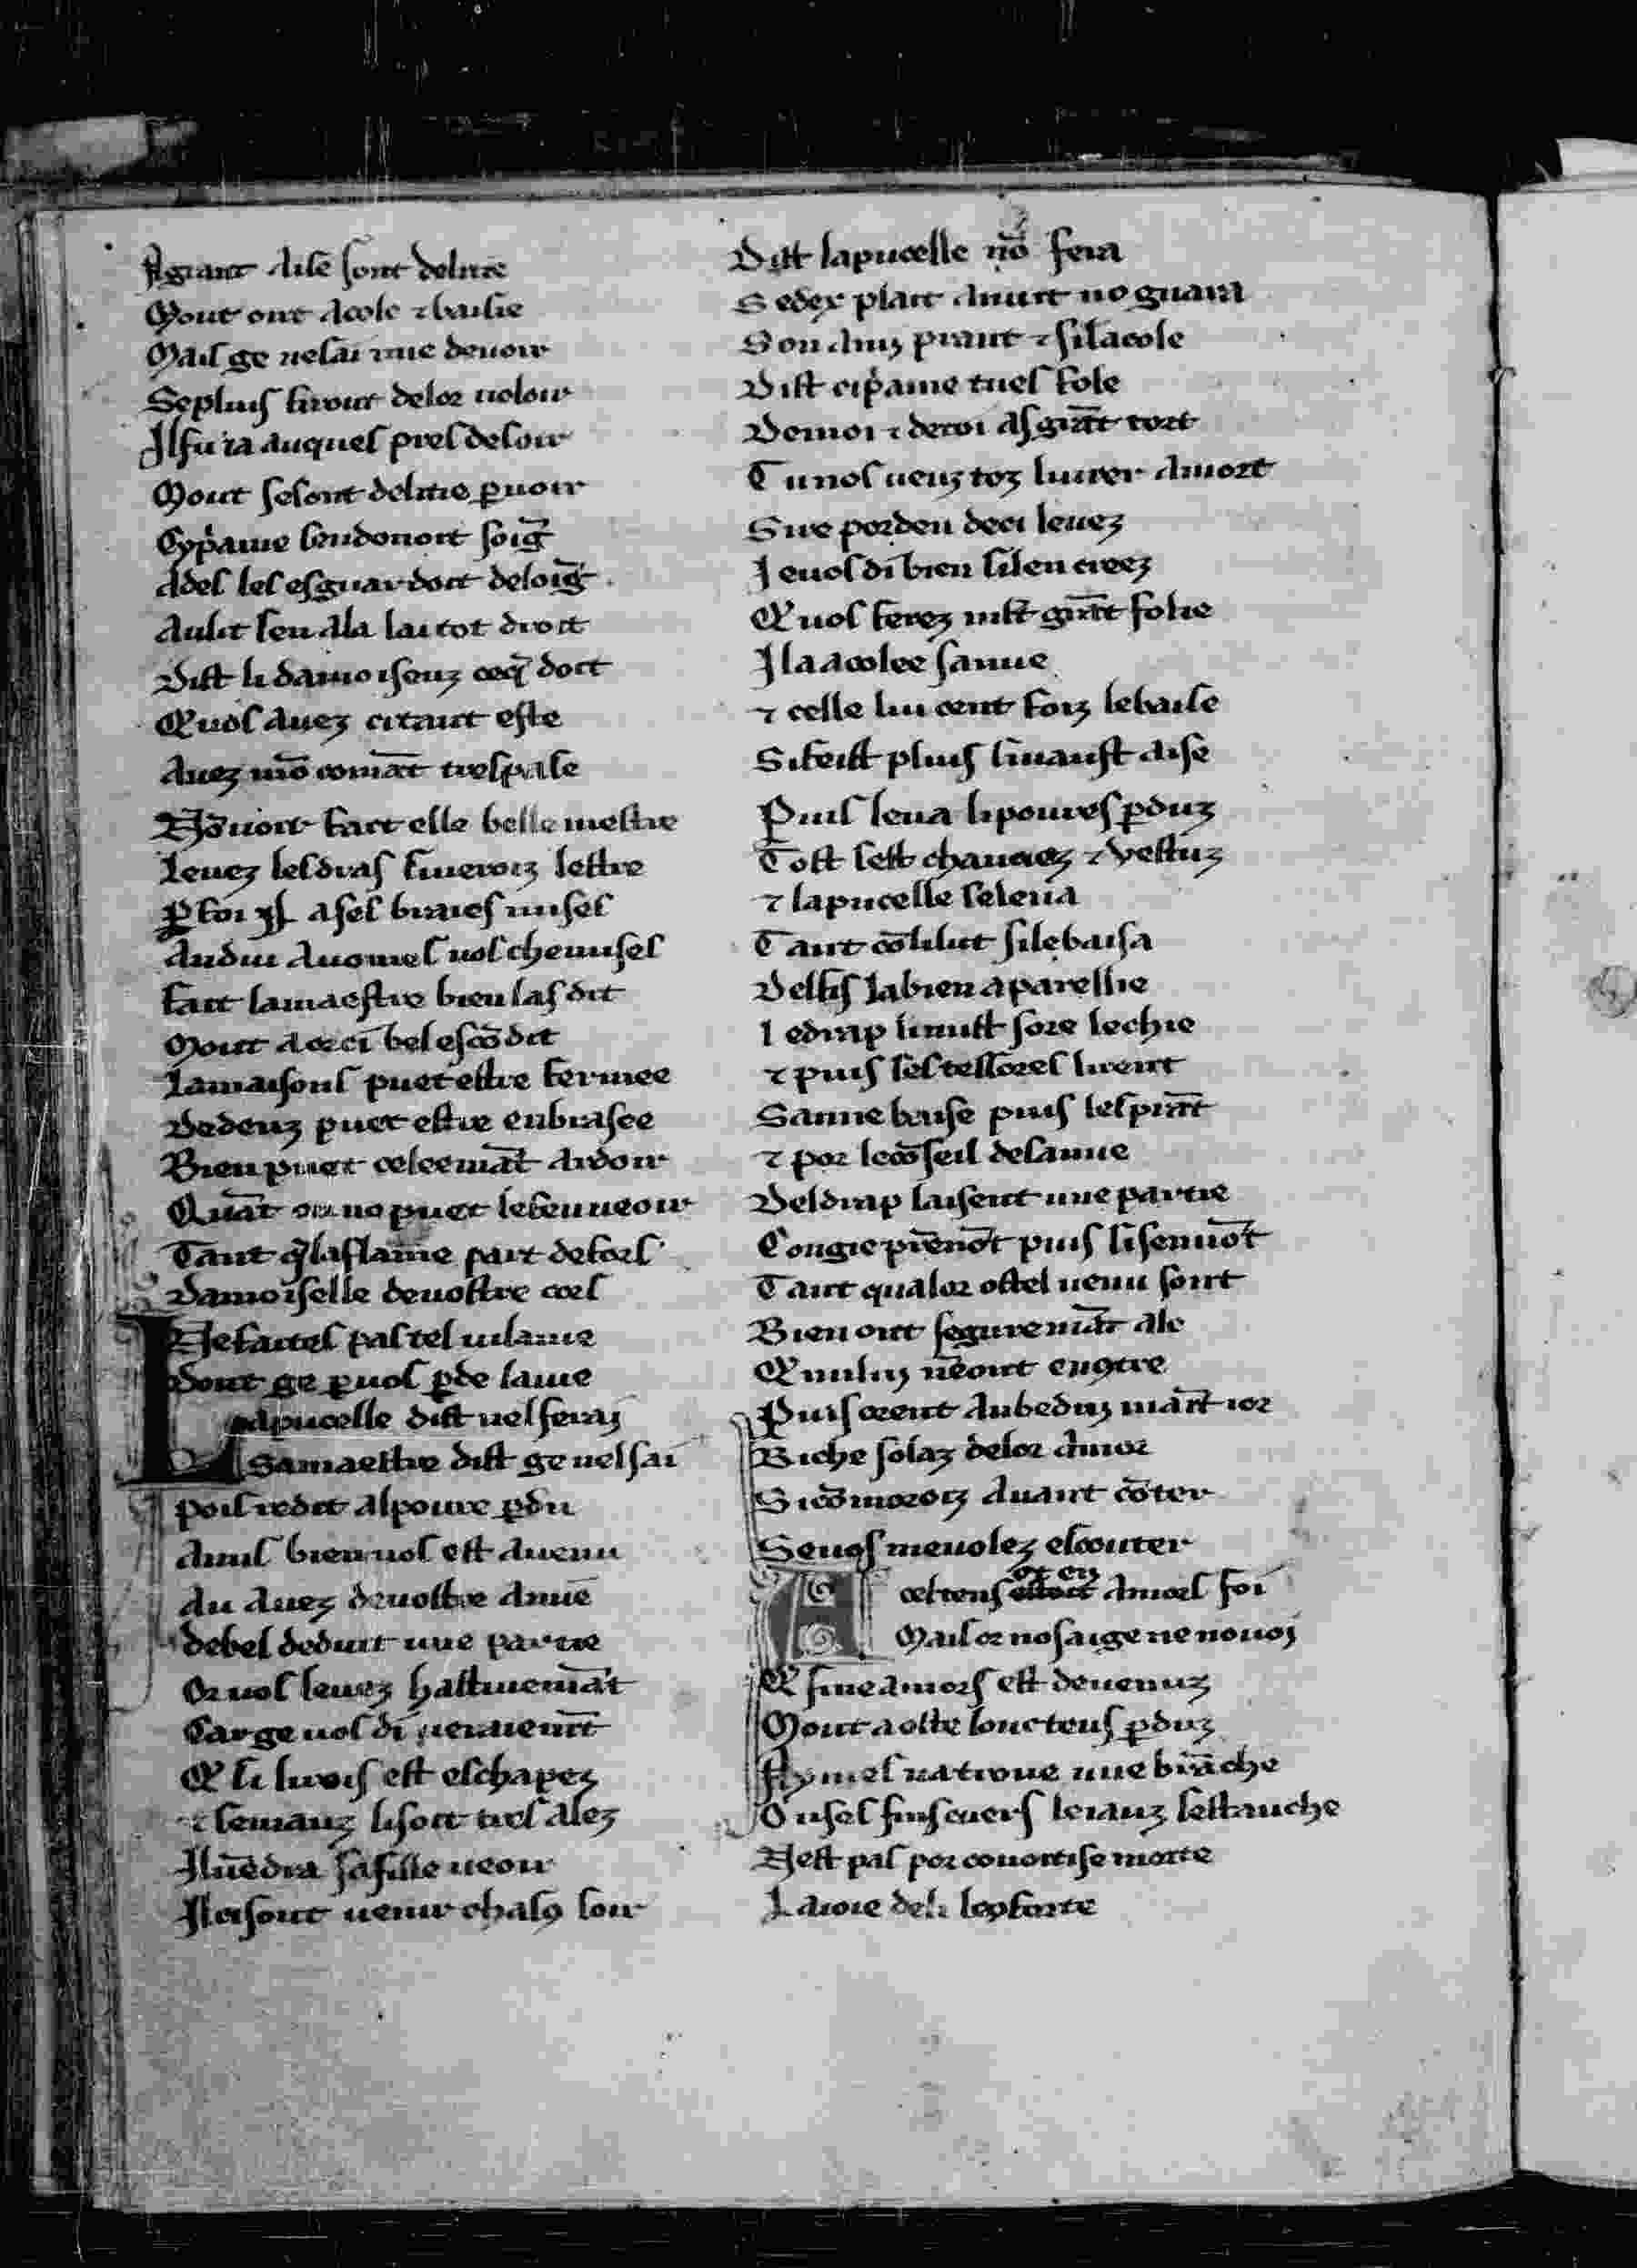 A grant aise sont delitie
Mout ont acole ⁊ baisie
Mais ge nesai mie deuoir
Seplus firont delor uoloir
Il fu ia auques pres desoir
Mout sesont delitie ꝑuoir
Cyp̾aine bendonoit soig̅
Ades les esguardoit deloig̅
Aulit sen ala lai tot droit
Dist li damoiseuz ceq̅ doit
Q uos auez citant este
Auez mō comāt trespase
Nō uoir fait elle belle mestre
Leuez lesdras si uerroiz lestre
ꝑ foi il a ses braies mises
Andui auomes uos chemises
fait lamaestre bien las dit
Mout a aci bel escōdit
La maisons puet estre fermee
Dedenz puet estre enbrasee
Bien puet celeemāt ardoir
Quāt on no puet lefeu ueoir
Tant q̅ laflame part defors
Damoiselle deuostre cors
Nefaites pas tel uilanie
dont ge ꝑuos ꝑde lauie
L apucelle dist nel ferai
Samaestre dist ge nel sai
pois redit alpoure ꝑdu
Amis bien uos est auenu
Au auez deuostre amie
debel deduit une partie
Or uos leuez hastiuemāt
Car ge uos di ueraiemt̄
Q li lirois est eschapez
⁊ lemanz lisoit tres alez
Iluēdra safille ueoir
Il ensont uenir chasq̾ soir
Dist lapucelle nō fera
S edex plait anuit no guara
Son amj prant ⁊ silacole
Dist cip̾aine tues fole
Demoi ⁊ detoi as grāt tort
T u nos ueuz toz liurer amort
Sire pordeu deci leuez
I euos di bien silen creez
Q uos ferez mlt̄ grāt folie
I la acolee samie
⁊ celle lui cent foiz lebaise
Si feist plus sinaust aise
Puis leua lipoures ꝑduz
Tost sest chauciez ⁊ vestuz
⁊ lapucelle seleua
Tant cō lilut silebaisa
Delis la bien aparellie
l edrap limist sore lechie
⁊ puis les tessores lirent
Samie baise puis les prāt
⁊ por lecōseil desamie
Deldrap laisent une partie
Congie prēnōt puis lisenuōt
Tant qualor ostel uenu sont
Bien ont seguremāt ale
Q nului nēont enꝯtre
Puis orent anbeduj maīt ior
Riche solaz delor amor
Si cō moroiz auant cōter
Seuos meuolez escouter
A celtens or en amors foi
Mais or nosaige ne nouoi
Q fine amors est deuenuz
Mout a oste lonc tens ꝑduz
Ay mes na troue une brāche
O nsel fins cuers leianz sestanche
Nest pas por couoitise morte
La ioie deli lepforte